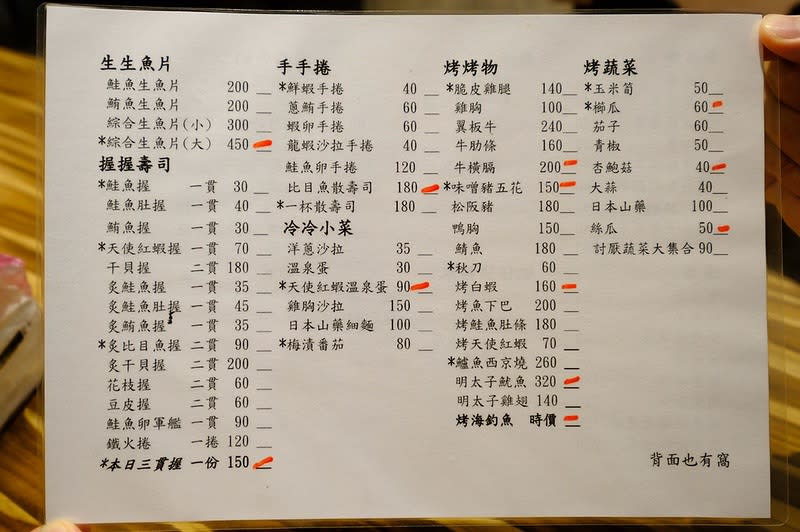 生生魚片
鮭魚生魚片 200
鮪魚生魚片 200
綜合生魚片(小) 300
*綜合生魚片(大) 450
握握壽司
*鮭魚握 一貫 30
鮭魚肚握 一貫 35
鮪魚握 一貫 30
*天使紅蝦握 一貫 70
干貝握 二貫 180
炙鮭魚握 一貫 35
炙鮭魚肚握 一貫 45
炙鮪魚握 一貫 35
*炙比目魚握 二貫 90
炙干貝握 二貫 200
花枝握 二貫 60
豆皮握 二貫 60
鮭魚卵軍艦 一貫 90
鐵火捲 一捲 120
*本日三貫握 一份 150
手手捲
*鮮蝦手捲 40
蔥鮪手捲 60
蝦卵手捲 60
龍蝦沙拉手捲 40
鮭魚卵手捲 120
比目魚散壽司 180
*一杯散壽司 180
冷冷小菜
洋蔥沙拉 35
溫泉蛋 30
*天使紅蝦溫泉蛋 90
雞胸沙拉 150
日本山藥細麵 100
*梅漬番茄 80
烤烤物
*脆皮雞腿 140
雞胸 100
翼板牛 240
牛肋條 160
牛橫膈 200
*味噌豬五花 150
松阪豬 180
鴨胸 150
鯖魚 180
*秋刀 60
烤白蝦 160
烤魚下巴 200
烤鮭魚肚條 180
烤天使紅蝦 70
*鱸魚西京燒 260
明太子魷魚 320
明太子雞翅 140
烤海釣魚 時價
烤蔬菜
*玉米筍 50
*櫛瓜 60
茄子 60
青椒 50
杏鮑菇 40
大蒜 40
日本山藥 100
絲瓜 50
討厭蔬菜大集合 90
背面也有窩